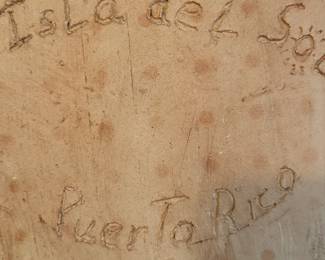 Isla del Sol
Puerto Rico